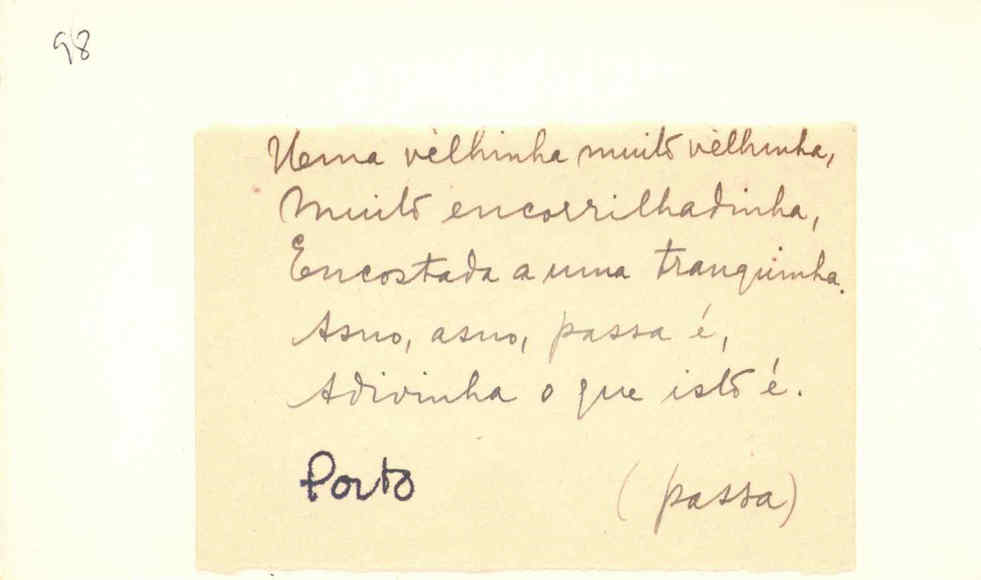 98
Uma vèlhinha muito vèlhinha,
Muito encorrilhadinha,
Encostada a uma tranquinha.
Asno, asno, passa é,
Adivinha o que isto é.
Porto (passa)